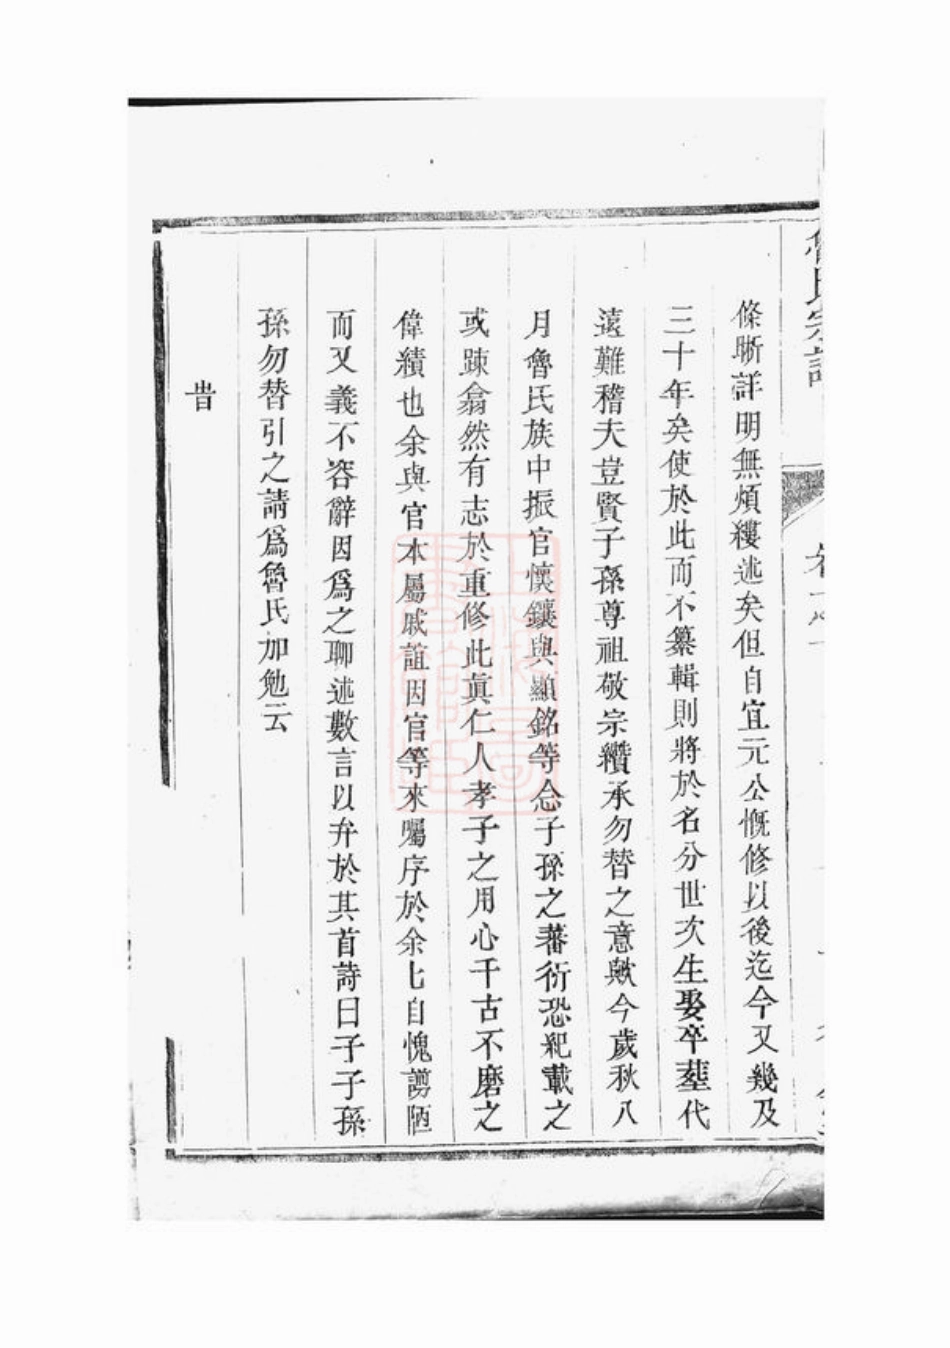 條晰詳明無煩縷述矣但自宜元公慨修以後迄今又幾及
三十年矣使於此而不纂輯則將於名分世次生娶卒塟代
遠難稽夫豈賢子孫尊祖敬宗纘承勿替之意歟今歲秋八
月魯氏族中振官懷鑲與顯銘等念子孫之蕃衍恐紀載之
或疎翕然有志於重修此眞仁人孝子之用心千古不磨之
偉績也余與官本屬戚誼因官等來囑序於余匕自愧謭陋
而又義不容辭因爲之聊述數言以弁於其首詩曰子子孫
孫勿替引之請爲魯氏加勉云
旹